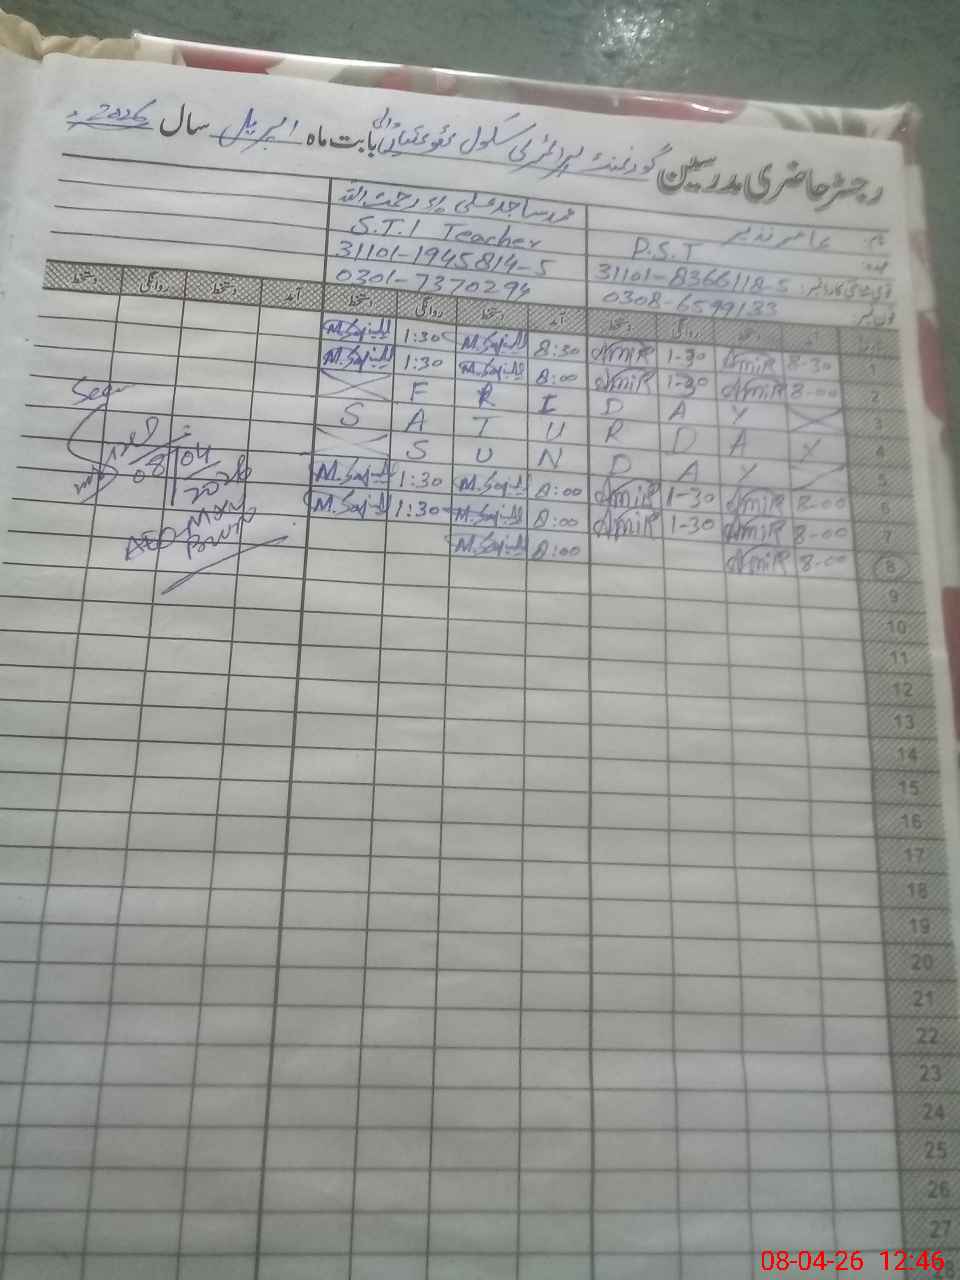 رجسٹر حاضری مدرسین گورنمنٹ پرائمری سکول بابت ماہ اپریل سال 2026ء
نام: عامر نذیر محمد ساجد علی رحمت اللہ
عہدہ: P.S.T S.T.I Teacher
قومی شناختی کارڈ نمبر: 31101-8366118-5 31101-1945814-5
فون نمبر 0308-6599133 0301-7370294
آمد دستخط روانگی دستخط آمد دستخط روانگی دستخط آمد دستخط روانگی دستخط
1 8-30 AmiR 1-30 AmiR 8:30 M.Sajid 1:30 M.Sajid
2 8-00 AmiR 1-30 AmiR 8:00 M.Sajid 1:30 M.Sajid
3 F R I D A Y
4 S A T U R D A Y
5 S U N D A Y
6 8-00 AmiR 1-30 AmiR 8:00 M.Sajid 1:30 M.Sajid
7 8-00 AmiR 1-30 AmiR 8:00 M.Sajid 1:30 M.Sajid
8 8-00 AmiR 8:00 M.Sajid
Seen
08/04/2026
AEO
9
10
11
12
13
14
15
16
17
18
19
20
21
22
23
24
25
26
27
28
08-04-26 12:46